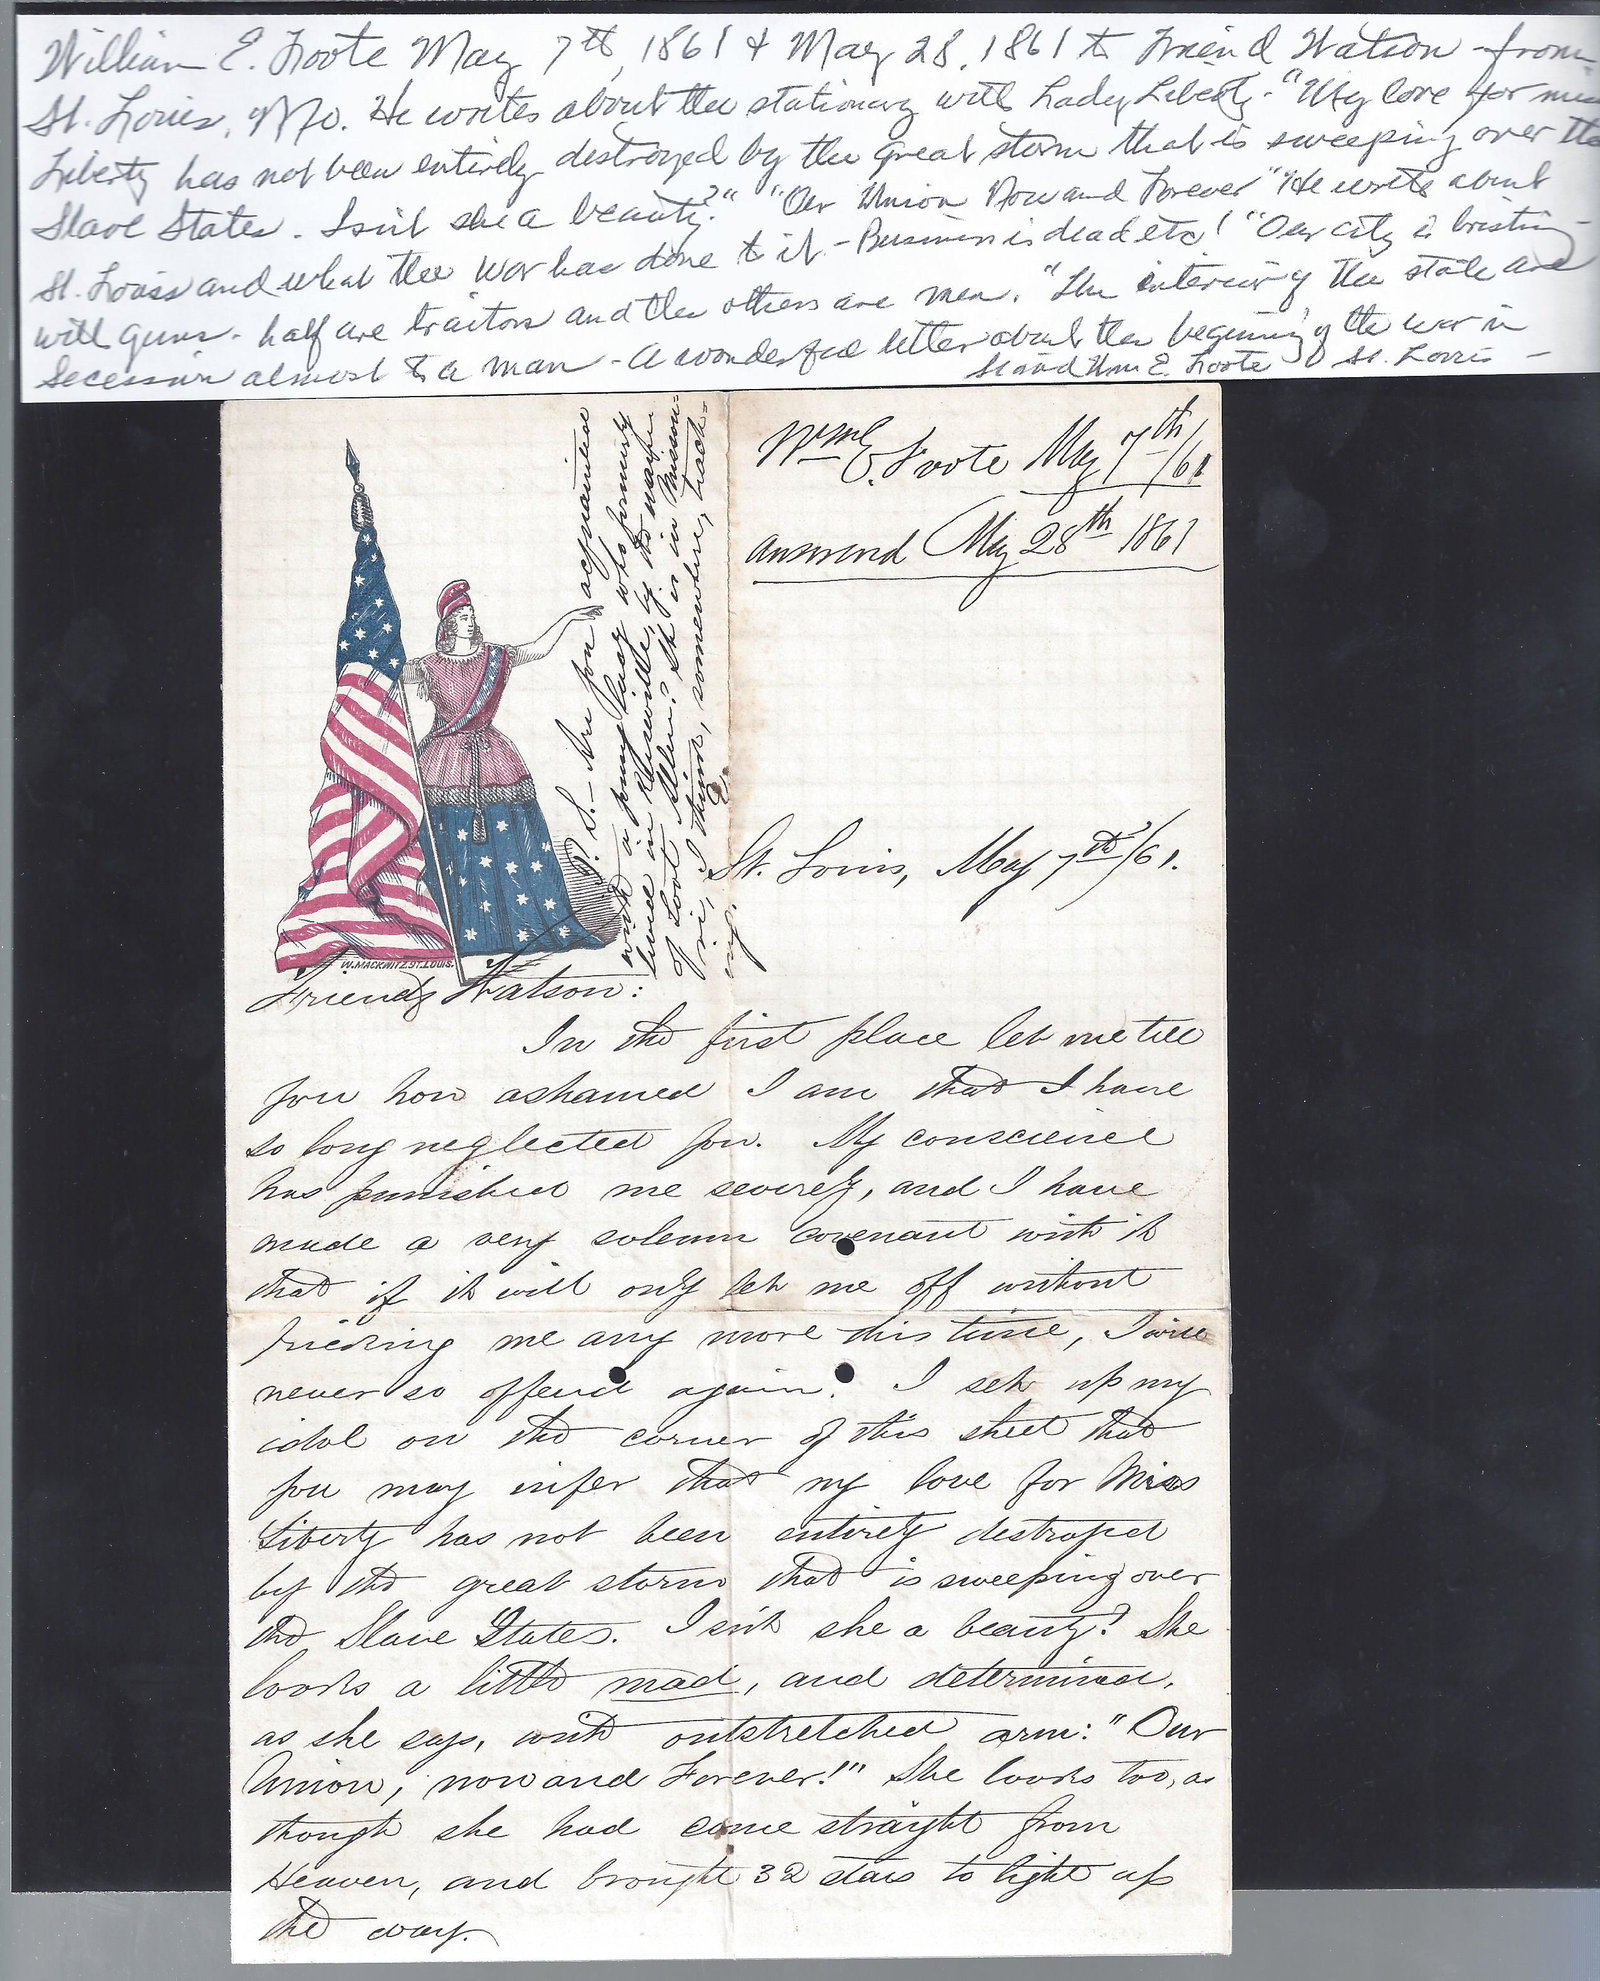 William E. Foote May 7th, 1861 & May 28, 1861 to Friend Watson - from
St. Louis, Mo. He writes about the stationary with Lady Liberty - "My love for miss
Liberty has not been entirely destroyed by the great storm that is sweeping over the
Slave States. Isn't she a beauty?" "Our Union Now and Forever" He writes about
St. Louis and what the war has done to it - Business is dead etc! "Our city is bristling
with guns - half are traitors and the others are men. "The interior of the state are
Secession almost to a man - A wonderful letter about the beginning of the war in
St. Louis -
Signed Wm E. Foote
Wm E. Foote May 7th/61
answered May 28th 1861
P. S. - Are you acquainted
with a young lady who formerly
lived in Knoxville, by the name
of Loot Allen? She is in Missou-
ri, I think, somewhere, teach-
ing.
St. Louis, May 7th/61.
W. MACKWITZ. ST. LOUIS.
Friend Watson:
In the first place let me tell
you how ashamed I am that I have
so long neglected you. My conscience
has punished me severely, and I have
made a very solemn covenant with it
that if it will only let me off without
pricking me any more this time, I will
never so offend again. I set up my
idol on the corner of this sheet that
you may infer that my love for Miss
Liberty has not been entirely destroyed
by the great storm that is sweeping over
the Slave States. Isn't she a beauty? She
looks a little mad, and determined,
as she says, with outstretched arm: "Our
Union, now and Forever!" She looks too, as
though she had come straight from
Heaven, and brought 32 stars to light up
the way.